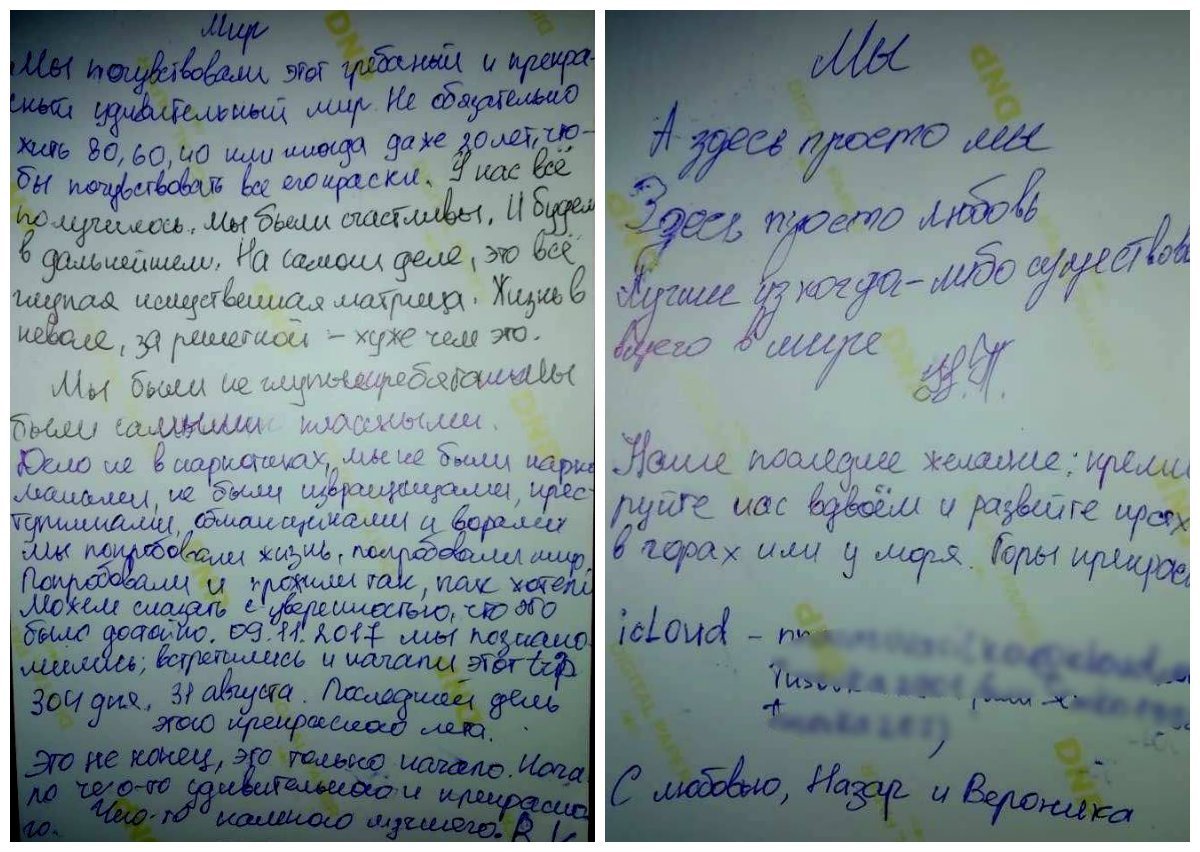 Мир
Мы почувствовали этот гребаный и прекра-
сный удивительный мир. Не обязательно
жить 80, 60, 40 или иногда даже 20 лет, что-
бы почувствовать все его краски. У нас всё
получилось. Мы были счастливы. И будем
в дальнейшем. На самом деле, это всё
глупая исскуственная матрица. Жизнь в
неволе, за решеткой – хуже чем это.
Мы были не глупыми ребятами. Мы
были самыми классными.
Дело не в наркотиках, мы не были нарко
манами, не были извращенцами, прес-
тупниками, обманщиками и ворами
Мы попробовали жизнь, попробовали мир.
Попробовали и прожили так, как хотели
Можем сказать с уверенностью, что это
было достойно. 09.11.2017 мы познако-
мились, встретились и начали этот trip
304 дня, 31 августа. Последний день
этого прекрасного лета.
Это не конец, это только начало. Нача
ло чего-то удивительного и прекрасно
го. Чего-то намного лучшего.
Мы
А здесь просто мы
Здесь просто любовь
Лучшие из когда-либо существова
вшего в мире
Наше последние желание: креми
руйте нас вдвоём и развейте прах
в горах или у моря. Горы прекрас
icLoud –
С любовью, Назар и Вероника
DNP
DNP
DNP